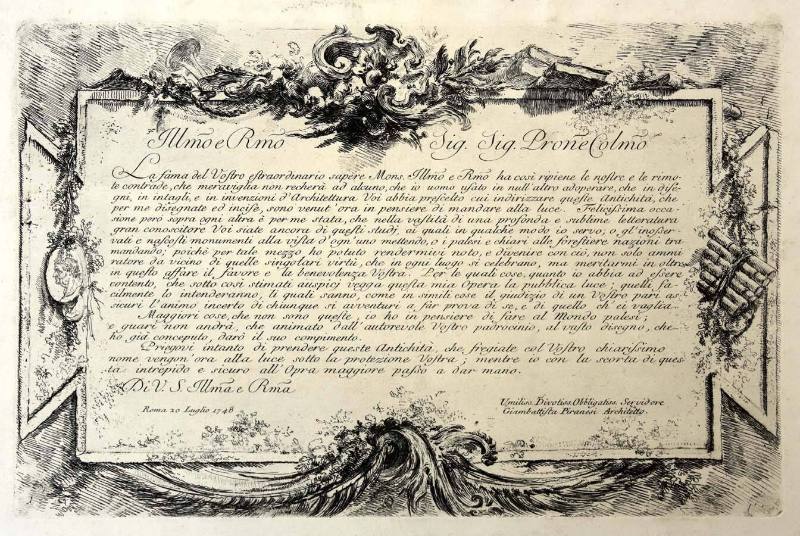 Illm̃o e Rm̃o Sig. Sig. Prõne Colm̃o
La fama del Vostro estraordinario sapere Mons. Illm̃o e Rm̃o ha così ripiene le nostre e le rimo-
te contrade, che meraviglia non recherà ad alcuno, che io uomo usato in null'altro adoperare, che in dise-
gni, in intagli, e in invenzioni d'Architettura Voi abbia prescelto cui indirizzare queste Antichità, che
per me disegnate ed incise, sono venut'ora in pensiere di mandare alla luce. Felicissima occa-
sione però sopra ogni altra è per me stata, che nella vastità di una profonda e sublime letteratura
gran conoscitore Voi siate ancora di questi studj, ai quali in qualche modo io servo; o gl'inosser-
vati e nascosti monumenti alla vista d'ogn'uno mettendo, o i palesi e chiari alle forestiere nazioni tra-
mandando; poichè per tale mezzo ho potuto rendermivi noto, e divenire con ciò, non solo ammi-
ratore da vicino di quelle singolari virtù, che in ogni luogo si celebrano, ma meritarmi in oltre
in questo affare il favore e la benevolenza Vostra. Per le quali cose, quanto io abbia ad essere
contento, che sotto così stimati auspicj vegga questa mia Opera la pubblica luce; quelli fa-
cilmente l'intenderanno, li quali sanno, come in simili cose il giudizio di un Vostro pari as-
sicuri l'animo incerto di chiunque si avventuri a far prova di se, e di quello ch'ei vaglia.
Maggiori cose, che non sono queste, io ho in pensiere di fare al Mondo palesi;
e guari non andrà, che animato dall'autorevole Vostro padrocinio, al vasto disegno, che
ho già conceputo, darò il suo compimento.
Priegovi intanto di prendere queste Antichità, che fregiate col Vostro chiarissimo
nome vengon'ora alla luce sotto la protezione Vostra; mentre io con la scorta di ques-
ta intrepido e sicuro all'Opra maggiore passo a dar mano.
Di V. S. Illm̃a e Rm̃a
Roma 20 Luglio 1748
Umiliss. Divotiss. Obbligatiss. Servidore
Giambattista Piranesi Architetto.